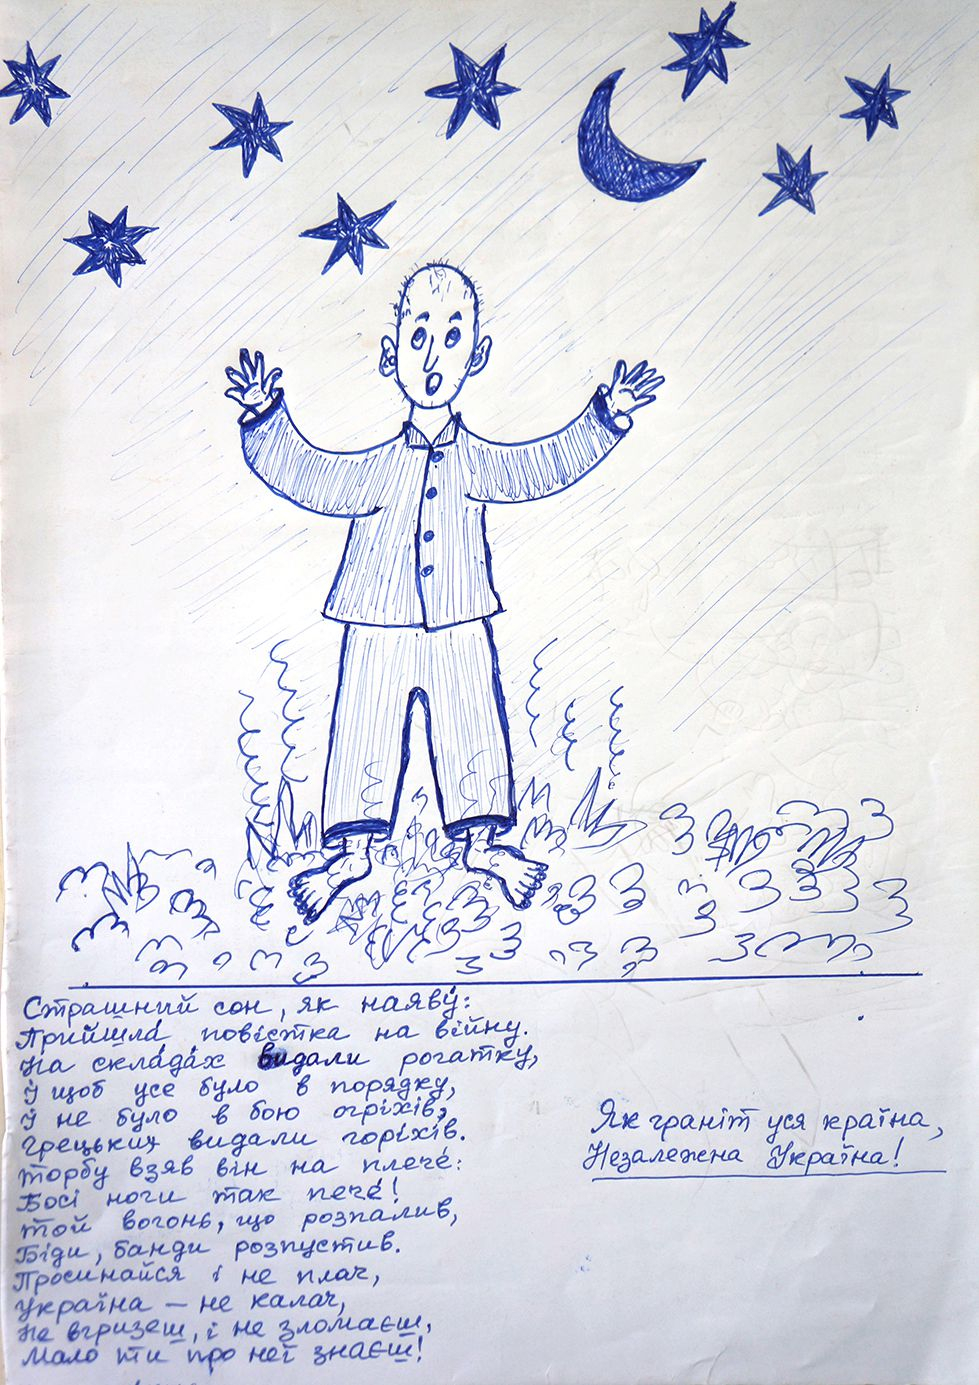 Страшний сон, як наяву́:
Прийшла́ повістка на війну.
На скла́да́х видали рогатку,
Й щоб усе було в порядку,
Й не було в бою огріхів,
Грецьких видали горіхів.
Торбу взяв він на плече́:
Босі ноги так пече́!
Той вогонь, що розпалив,
Біди, банди розпустив.
Просинайся і не плач,
Україна – не калач,
Не вгризеш, і не зломаєш,
Мало ти про неї знаєш!
Як граніт уся країна,
Незалежна Україна!